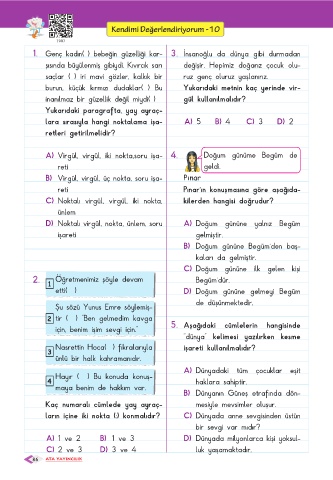 Kendimi Değerlendiriyorum - 10
1. Genç kadın( ) bebeğin güzelliği kar-
şısında büyülenmiş gibiydi. Kıvırcık sarı
saçlar ( ) iri mavi gözler, kalkık bir
burun, küçük kırmızı dudaklar( ) Bu
inanılmaz bir güzellik değil miydi( )
Yukarıdaki paragrafta, yay ayraç-
lara sırasıyla hangi noktalama işa-
retleri getirilmelidir?
A) Virgül, virgül, iki nokta,soru işa-
reti
B) Virgül, virgül, üç nokta, soru işa-
reti
C) Noktalı virgül, virgül, iki nokta,
ünlem
D) Noktalı virgül, nokta, ünlem, soru
işareti
2. 1 Öğretmenimiz şöyle devam
etti( )
2 Şu sözü Yunus Emre söylemiş-
tir ( ) "Ben gelmedim kavga
için, benim işim sevgi için."
3 Nasrettin Hoca( ) fıkralarıyla
ünlü bir halk kahramanıdır.
4 Hayır ( ) Bu konuda konuş-
maya benim de hakkım var.
Kaç numaralı cümlede yay ayraç-
ların içine iki nokta (:) konmalıdır?
A) 1 ve 2 B) 1 ve 3
C) 2 ve 3 D) 3 ve 4
66 ATA YAYINCILIK
3. İnsanoğlu da dünya gibi durmadan
değişir. Hepimiz doğarız çocuk olu-
ruz genç oluruz yaşlanırız.
Yukarıdaki metnin kaç yerinde vir-
gül kullanılmalıdır?
A) 5 B) 4 C) 3 D) 2
4. Doğum günüme Begüm de
geldi.
Pınar
Pınar'ın konuşmasına göre aşağıda-
kilerden hangisi doğrudur?
A) Doğum gününe yalnız Begüm
gelmiştir.
B) Doğum gününe Begüm'den baş-
kaları da gelmiştir.
C) Doğum gününe ilk gelen kişi
Begüm'dür.
D) Doğum gününe gelmeyi Begüm
de düşünmektedir.
5. Aşağıdaki cümlelerin hangisinde
"dünya" kelimesi yazılırken kesme
işareti kullanılmalıdır?
A) Dünyadaki tüm çocuklar eşit
haklara sahiptir.
B) Dünyanın Güneş etrafında dön-
mesiyle mevsimler oluşur.
C) Dünyada anne sevgisinden üstün
bir sevgi var mıdır?
D) Dünyada milyonlarca kişi yoksul-
luk yaşamaktadır.